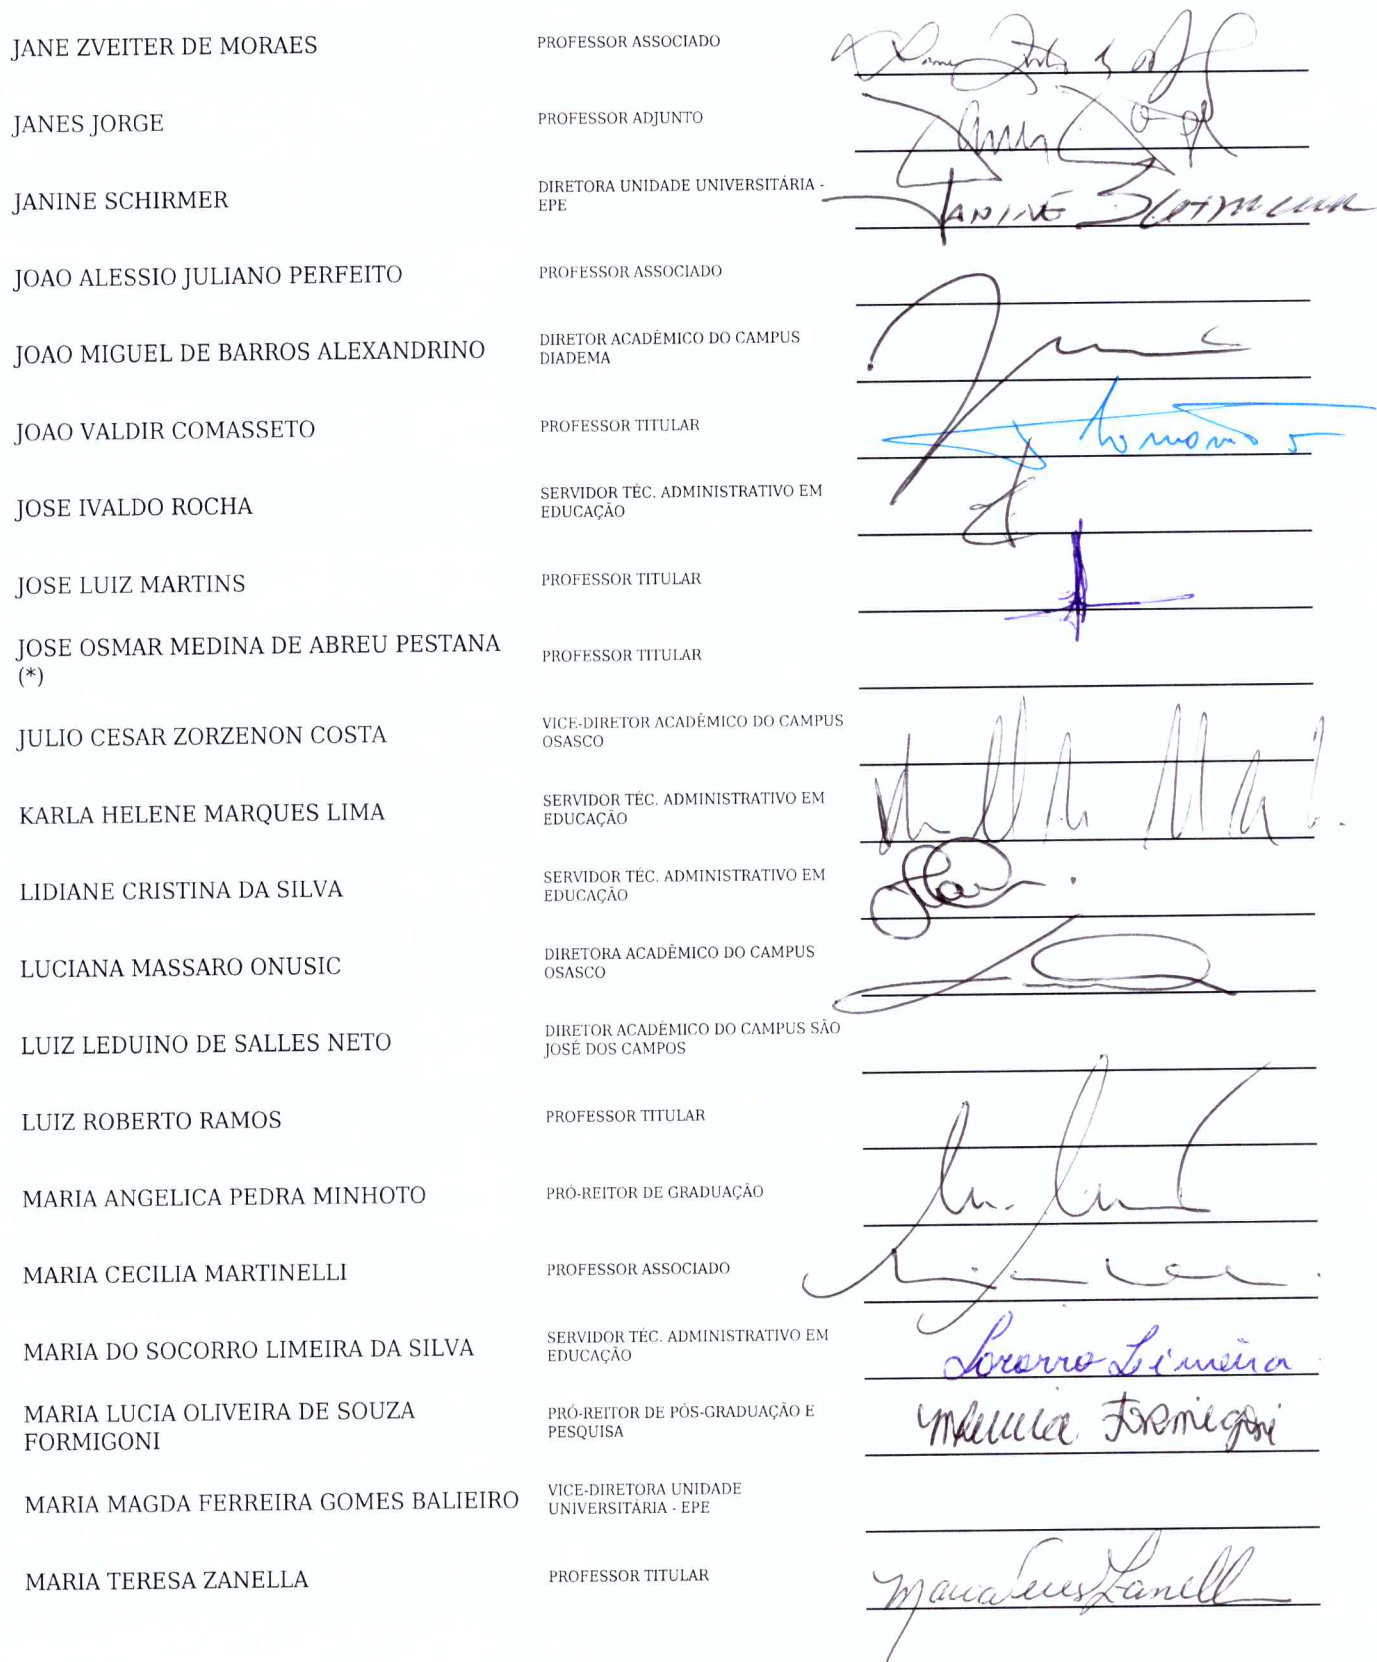 JANE ZVEITER DE MORAES PROFESSOR ASSOCIADO
JANES JORGE PROFESSOR ADJUNTO
JANINE SCHIRMER DIRETORA UNIDADE UNIVERSITÁRIA -
EPE JANINE Schirmer
JOAO ALESSIO JULIANO PERFEITO PROFESSOR ASSOCIADO
JOAO MIGUEL DE BARROS ALEXANDRINO DIRETOR ACADÊMICO DO CAMPUS
DIADEMA
JOAO VALDIR COMASSETO PROFESSOR TITULAR
JOSE IVALDO ROCHA SERVIDOR TÉC. ADMINISTRATIVO EM
EDUCAÇÃO
JOSE LUIZ MARTINS PROFESSOR TITULAR
JOSE OSMAR MEDINA DE ABREU PESTANA PROFESSOR TITULAR
(*)
JULIO CESAR ZORZENON COSTA VICE-DIRETOR ACADÊMICO DO CAMPUS
OSASCO
KARLA HELENE MARQUES LIMA SERVIDOR TÉC. ADMINISTRATIVO EM
EDUCAÇÃO
LIDIANE CRISTINA DA SILVA SERVIDOR TÉC. ADMINISTRATIVO EM
EDUCAÇÃO
LUCIANA MASSARO ONUSIC DIRETORA ACADÊMICO DO CAMPUS
OSASCO
LUIZ LEDUINO DE SALLES NETO DIRETOR ACADÊMICO DO CAMPUS SÃO
JOSÉ DOS CAMPOS
LUIZ ROBERTO RAMOS PROFESSOR TITULAR
MARIA ANGELICA PEDRA MINHOTO PRÓ-REITOR DE GRADUAÇÃO
MARIA CECILIA MARTINELLI PROFESSOR ASSOCIADO
MARIA DO SOCORRO LIMEIRA DA SILVA SERVIDOR TÉC. ADMINISTRATIVO EM
EDUCAÇÃO Socorro Limeira
MARIA LUCIA OLIVEIRA DE SOUZA PRÓ-REITOR DE PÓS-GRADUAÇÃO E
FORMIGONI PESQUISA Formigoni
MARIA MAGDA FERREIRA GOMES BALIEIRO VICE-DIRETORA UNIDADE
UNIVERSITÁRIA - EPE
MARIA TERESA ZANELLA PROFESSOR TITULAR